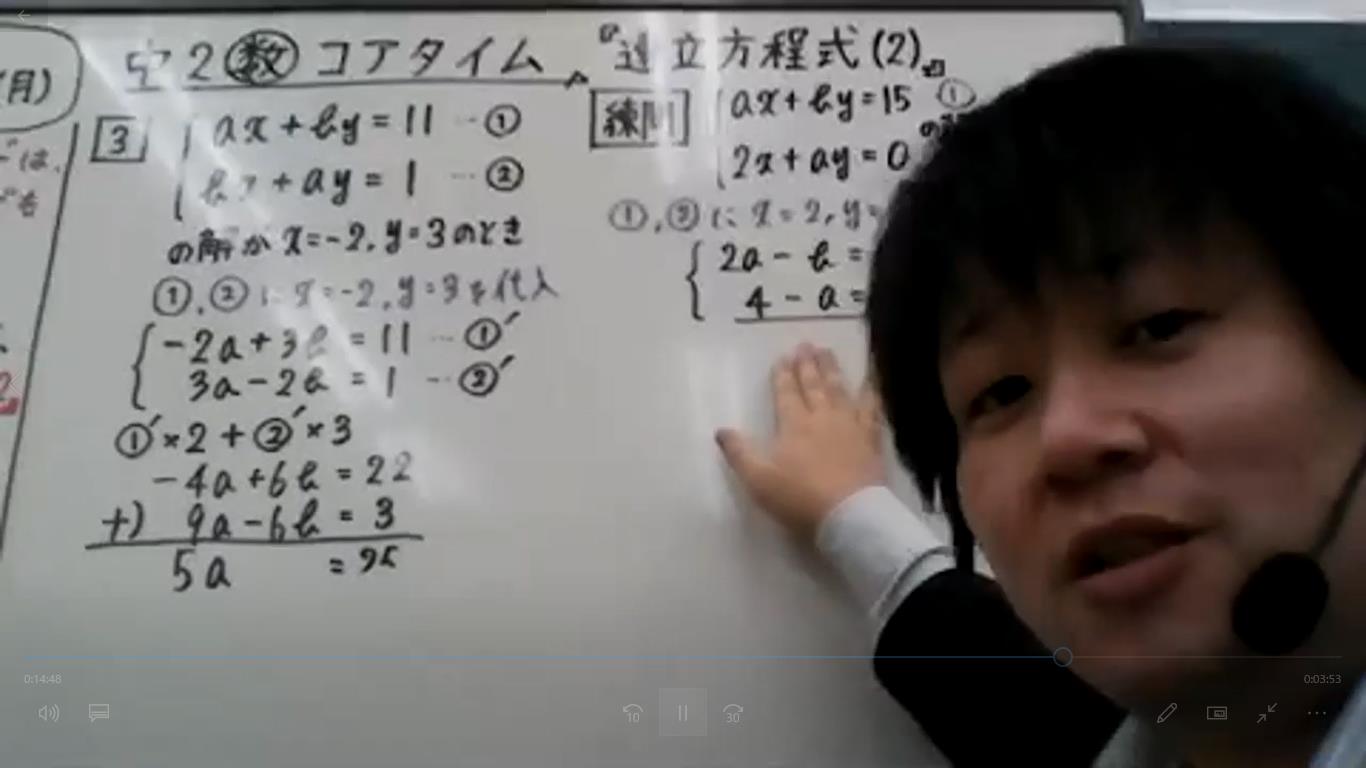 (月)
は、
も
2
中2 数 コアタイム 『連立方程式(2)』
3
ax + by = 11 … ①
bx + ay = 1 … ②
の解が x=-2, y=3 のとき
①, ② に x=-2, y=3 を代入
-2a+3b = 11 … ①′
3a-2b = 1 … ②′
①′×2 + ②′×3
-4a+6b = 22
+) 9a-6b = 3
5a = 25
練問
ax+by=15 ①
の
2x+ay=0
①, ② に x=2, y=
2a - b =
4 - a =
0:14:48
0:03:53
10
30